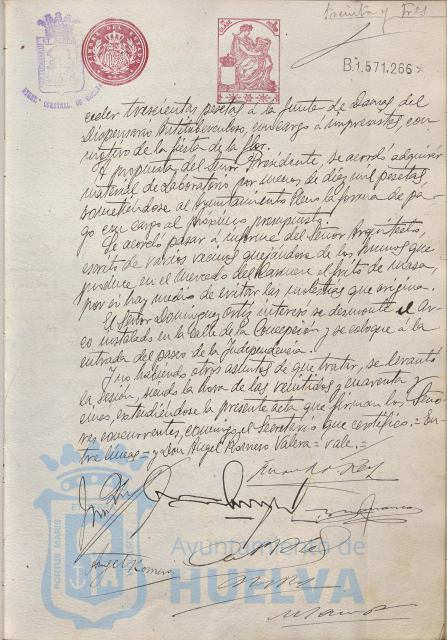 treinta y tres
B.1.571.266*
ceder trescientas pesetas á la Junta de Damas del
Dispensario Antituberculoso, con cargo á imprevistos, con
motivo de la fiesta de la flor.
A propuesta del Señor Presidente, se acordó adquirir
material de Laboratorio por menos de diez mil pesetas
sometiéndose al Ayuntamiento Pleno la forma de pa-
go con cargo al próximo presupuesto.
Se acordó pasar á informe del Señor Arquitecto,
escrito de varios vecinos quejándose de los humos que
produce en el Mercado del Carmen el frito de masa,
por si hay medio de evitar las molestias que origina.
El Señor Dominguez Ortiz interesó se desmonte el Ar-
co instalado en la calle de la Concepción y se coloque á la
entrada del paseo de la Independencia.
Y no habiendo otros asuntos de que tratar, se levantó
la sesión, siendo la hora de las veintidos y cuarenta y
cinco, extendiéndose la presente acta que firman los Seño-
res concurrentes, conmigo el Secretario que certifico.= En-
tre lineas = y Don Angel Romero Valera = vale.=
Angel Romero
Ayuntamiento de
HUELVA
PORTUS MARIS